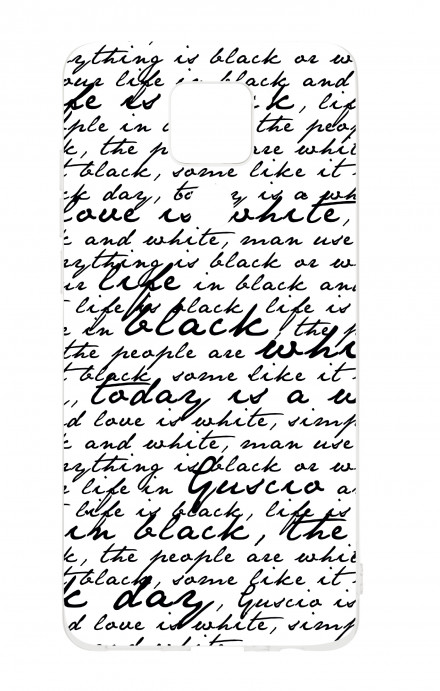 ything is black or w
our life in black and
fe is k, lif
ple in the peop
k, the p are whit
t black, some like it
ck day, to y is a wh
love is white,
k and white, man use
rything is black or w
ur life in black and
t life is black, life is
e in black, the p
the people are whi
t black, some like it
, today is a w
d love is white, simp
k and white, man use
rything is black or w
r life in Guscio a
t life is black, life is
in black, the
k, the people are whit
t black, some like it
k day, Guscio is
d love is white, simp
and white